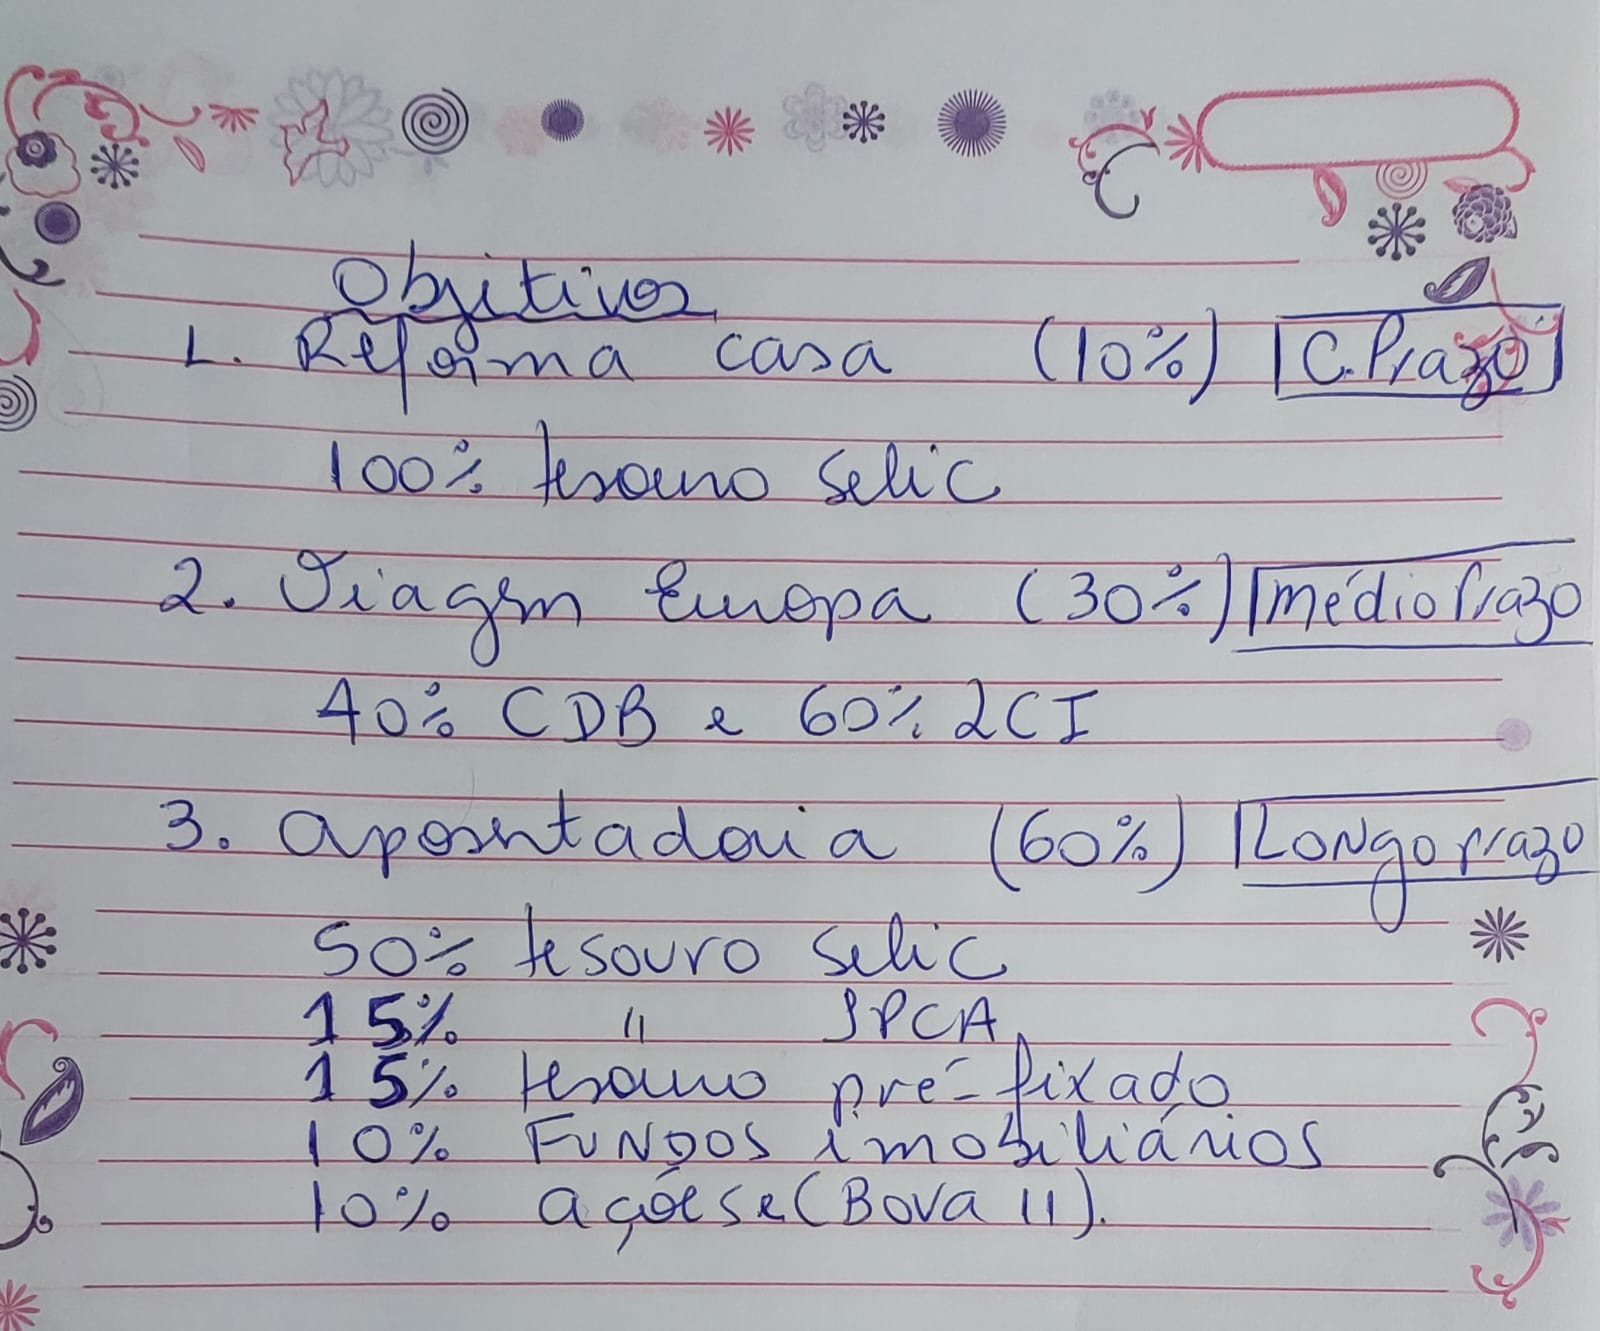 Objetivos
1. Reforma casa (10%) C. Prazo
100% tesouro Selic
2. Viagem Europa (30%) médio Prazo
40% CDB e 60% LCI
3. aposentadoria (60%) Longo prazo
50% tesouro Selic
15% " IPCA
15% tesouro pré-fixado
10% FUNDOS imobiliários
10% ações e (Bova 11).